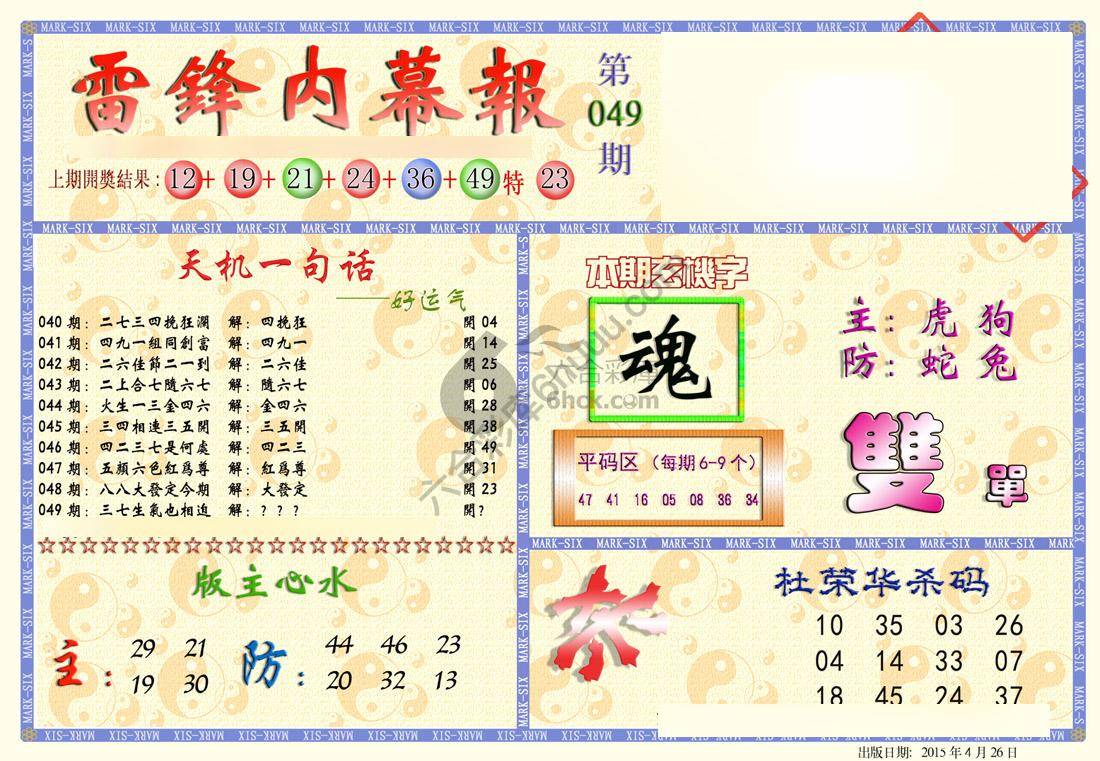 MARK-SIX MARK-SIX MARK-SIX MARK-SIX MARK-SIX MARK-SIX MARK-SIX MARK-SIX MARK-SIX MARK-SIX MARK-SIX MARK-SIX MARK-SIX
雷鋒内幕報
第
049
期
上期開獎結果：12+19+21+24+36+49特23
天机一句话
——好运气
040期：二七三四挽狂瀾 解：四挽狂 開04
041期：四九一組同創富 解：四九一 開14
042期：二六佳節二一到 解：二六佳 開25
043期：二上合七隨六七 解：隨六七 開06
044期：火生一三金四六 解：金四六 開28
045期：三四相連三五開 解：三五開 開38
046期：四二三七是何處 解：四二三 開49
047期：五顏六色紅爲尊 解：紅爲尊 開31
048期：八八大發定今期 解：大發定 開23
049期：三七生氣也相迫 解：??? 開?
本期玄機字
魂
平码区（每期6-9个）
47 41 16 05 08 36 34
主：虎 狗
防：蛇 兔
雙 單
六合彩库
6hck.com
版主心水
主： 29 21
19 30
防： 44 46 23
20 32 13
杜荣华杀码
10 35 03 26
04 14 33 07
18 45 24 37
出版日期: 2015年4月26日